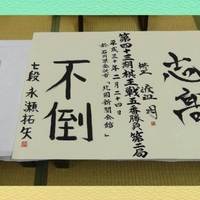 志高
棋王 渡辺明
第四十三期棋王戦五番勝負第二局
平成三十年二月二十四日
於 石川県金沢市「北國新聞会館」
不倒
七段 永瀬拓矢